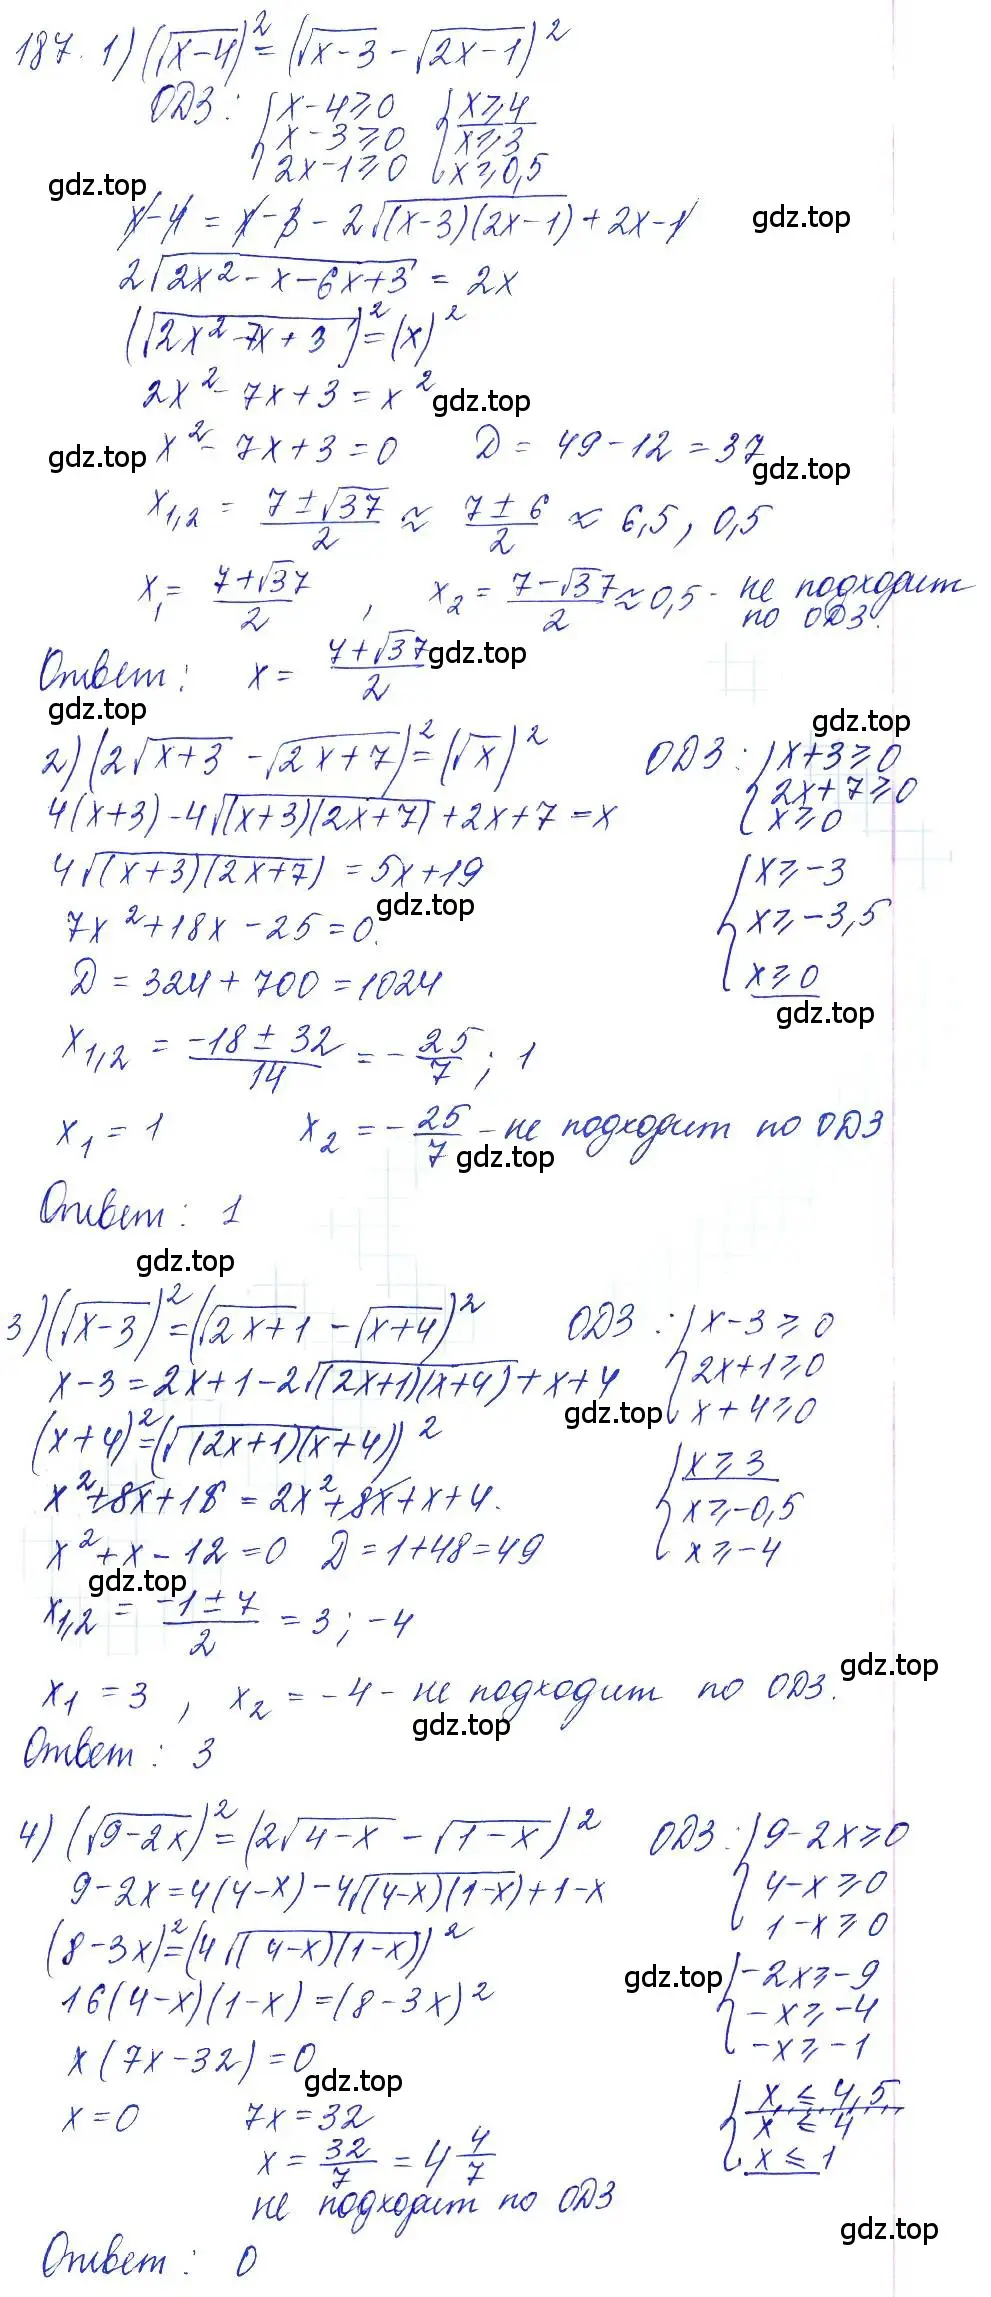 187. 1) (√(x-4))² = (√(x-3) - √(2x-1))²
ОДЗ: { x-4⩾0 { x⩾4
x-3⩾0 x⩾3
2x-1⩾0 x⩾0,5
gdz.top
gdz.top
x-4 = x-3 - 2√((x-3)(2x-1)) + 2x-1
2√(2x²-x-6x+3) = 2x
(√(2x²-7x+3))² = (x)²
2x²-7x+3 = x²
gdz.top
x²-7x+3=0 D = 49-12 = 37
gdz.top
gdz.top
x₁,₂ = (7±√37)/2 ≈ (7±6)/2 ≈ 6,5, 0,5
x₁ = (7+√37)/2, x₂ = (7-√37)/2 ≈ 0,5 - не подходит
по ОДЗ.
Ответ: x = (7+√37)/2
gdz.top
gdz.top
gdz.top
2) (2√(x+3) - √(2x+7))² = (√x)² ОДЗ: { x+3⩾0
4(x+3) - 4√((x+3)(2x+7)) + 2x+7 = x 2x+7⩾0
x⩾0
4√((x+3)(2x+7)) = 5x+19 { x⩾-3
gdz.top
7x²+18x-25=0. x⩾-3,5
D = 324+700 = 1024 x⩾0
gdz.top
x₁,₂ = (-18±32)/14 = -25/7; 1
x₁ = 1 x₂ = -25/7 - не подходит по ОДЗ
gdz.top
Ответ: 1
gdz.top
3) (√(x-3))² = (√(2x+1) - √(x+4))² ОДЗ: { x-3⩾0
x-3 = 2x+1-2√((2x+1)(x+4)) + x+4 2x+1⩾0
gdz.top
x+4⩾0
(x+4)² = (√((2x+1)(x+4)))²
x²+8x+16 = 2x²+8x+x+4. { x⩾3
x⩾-0,5
x²+x-12=0 D=1+48=49 x⩾-4
gdz.top
x₁,₂ = (-1±7)/2 = 3; -4
gdz.top
x₁ = 3, x₂ = -4 - не подходит по ОДЗ.
gdz.top
Ответ: 3
4) (√(9-2x))² = (2√(4-x) - √(1-x))² ОДЗ: { 9-2x⩾0
9-2x = 4(4-x) - 4√((4-x)(1-x)) + 1-x 4-x⩾0
1-x⩾0
(8-3x)² = (4√((4-x)(1-x)))²
gdz.top
{ -2x⩾-9
16(4-x)(1-x) = (8-3x)² -x⩾-4
-x⩾-1
x(7x-32)=0
gdz.top
x=0 7x=32 { x⩽4,5
x⩽4
x = 32/7 = 4 4/7 x⩽1
не подходит по ОДЗ
gdz.top
Ответ: 0